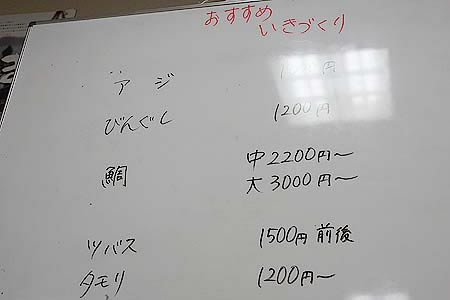 おすすめ
いきづくり
アジ
びんぐし 1200円
鯛 中2200円～
大3000円～
ツバス 1500円前後
タモリ 1200円～